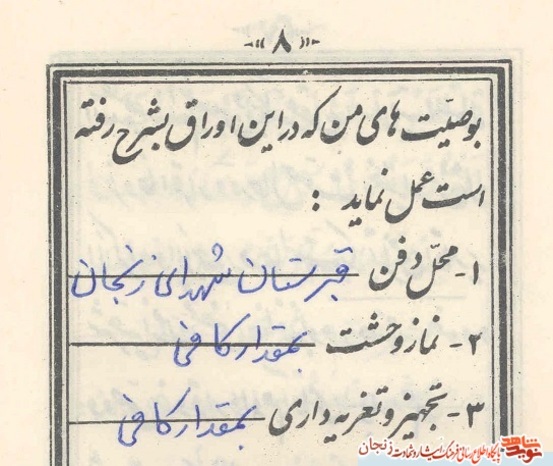 «۸»
بوصیّت های من که در این اوراق بشرح رفته
است عمل نماید :
۱- محلّ دفن قبرستان شهدای زنجان
۲- نماز وحشت بمقدار کافی
۳- تجهیز و تعزیه داری بمقدار کافی
نوید شاهد
پایگاه اطلاع رسانی فرهنگ ایثار و شهادت زنجان